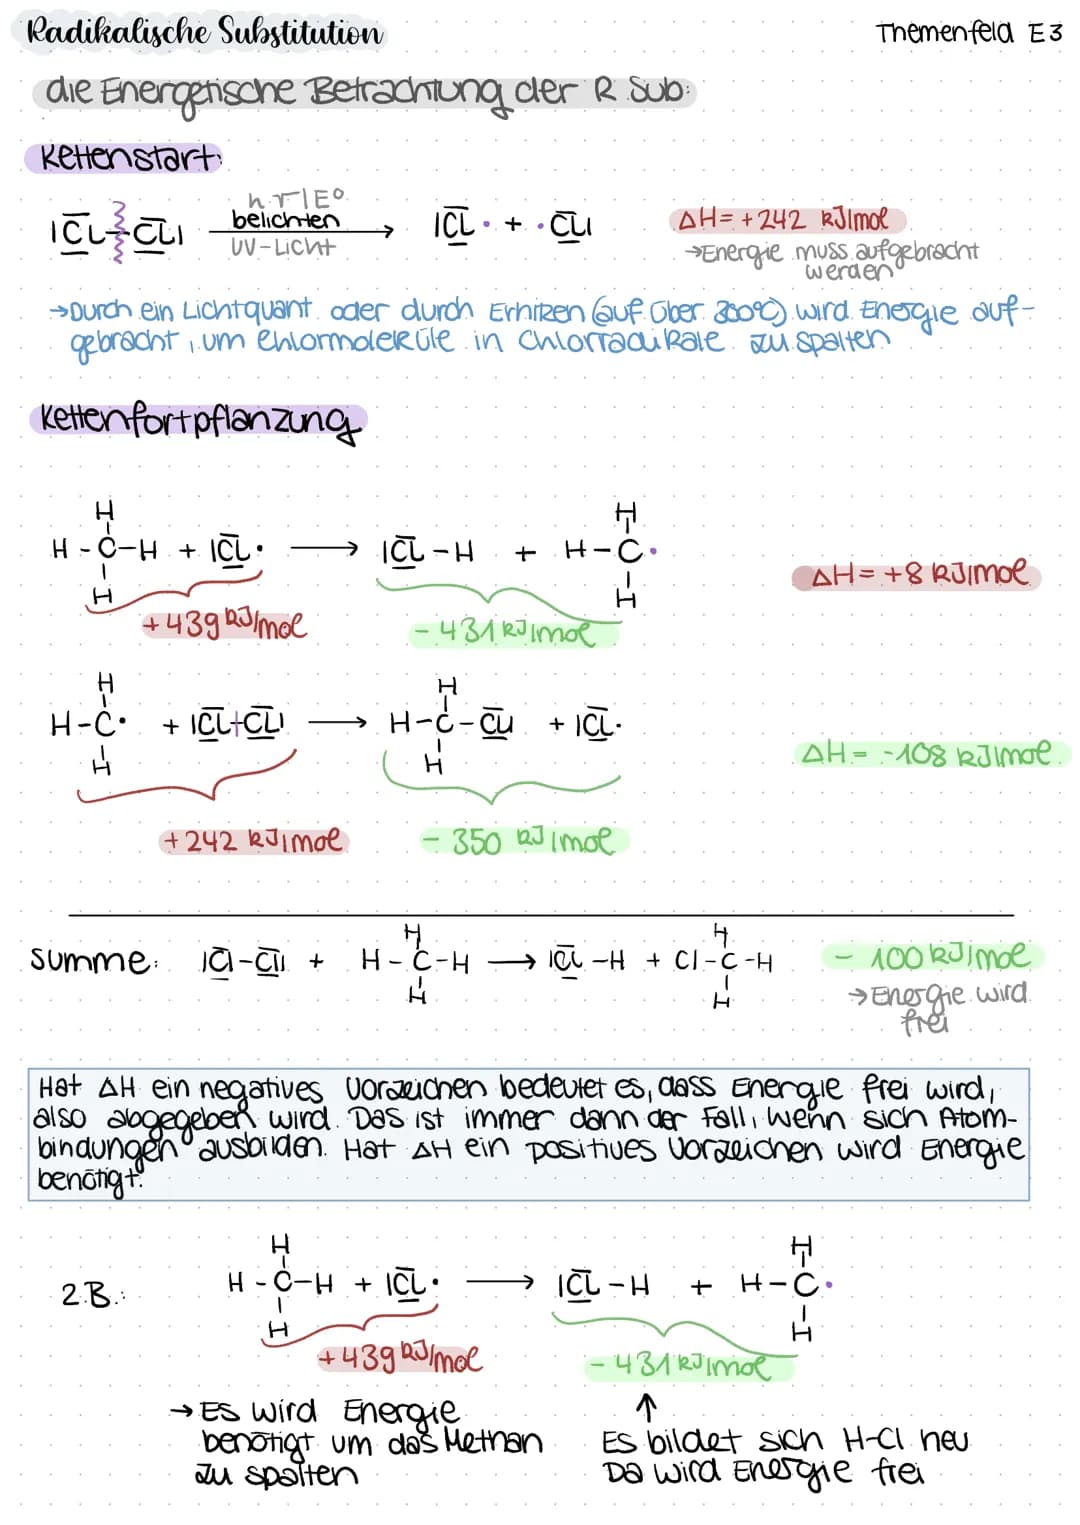 Radikalische Substitution
Themenfeld E3
die Energetische Betrachtung der R Sub:
Kettenstart:
|CL-CL| belichten UV-Licht → |CL· + ·CL| ΔH= +242 kJ/mol
→Energie muss aufgebracht
werden
→Durch ein Lichtquant oder durch Erhitzen (auf über 300°C) wird Energie auf-
gebracht, um Chlormoleküle in Chlorradikale zu spalten
Kettenfortpflanzung
H H
H-C-H + |CL· → |CL-H + H-C·
H H
ΔH= +8 kJ/mol
+439 kJ/mol -431 kJ/mol
H H
H-C· + |CL-CL| → H-C-CL| + |CL·
H H
ΔH= -108 kJ/mol
+242 kJ/mol -350 kJ/mol
H H
Summe: |Cl-Cl| + H-C-H → |CL-H + Cl-C-H -100 kJ/mol
H H
→Energie wird
frei
Hat ΔH ein negatives Vorzeichen bedeutet es, dass Energie frei wird,
also abgegeben wird. Das ist immer dann der Fall, wenn sich Atom-
bindungen ausbilden. Hat ΔH ein positives Vorzeichen wird Energie
benötigt.
H H
z.B.: H-C-H + |CL· → |CL-H + H-C·
H H
+439 kJ/mol -431 kJ/mol
→ Es wird Energie
benötigt um das Methan
zu spalten
↑
Es bildet sich H-Cl neu
Da wird Energie frei